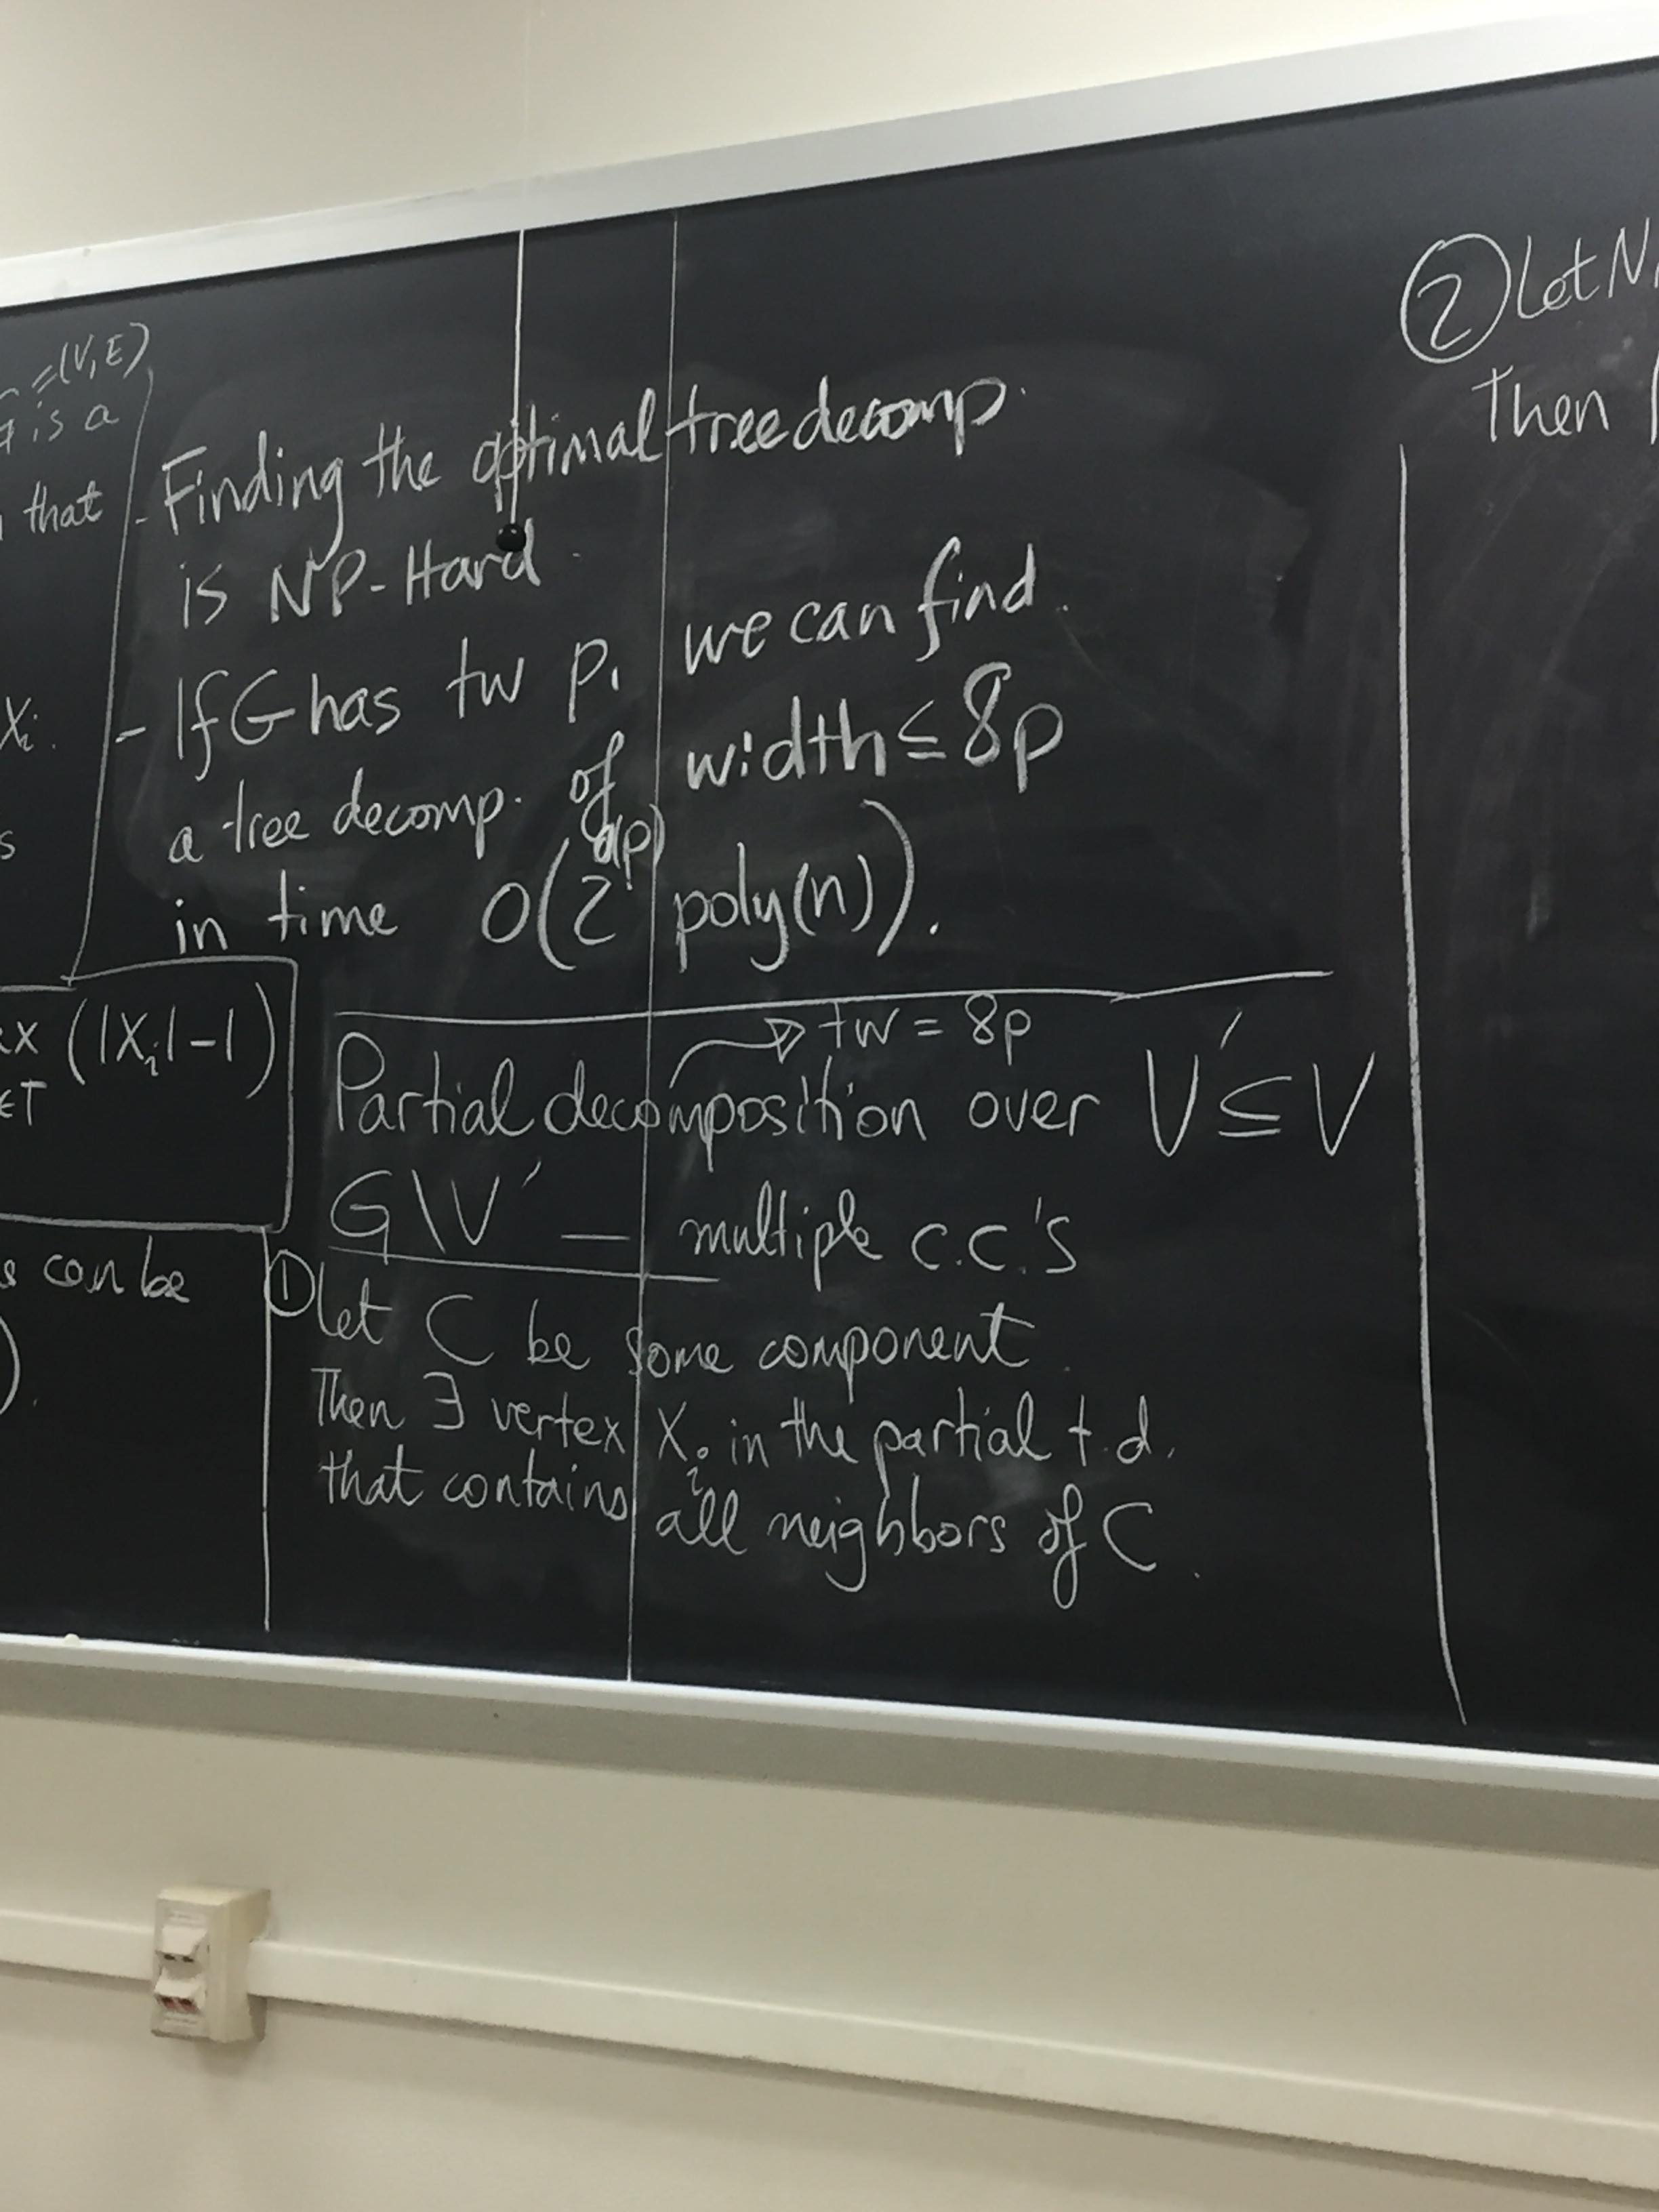 =(V,E)
is a
that
Xi.
s
(|Xi|-1)
∈T
can be
).
- Finding the optimal tree decomp.
is NP-Hard.
- If G has tw p, we can find
a tree decomp. of width ≤ 8p
in time O(2^O(p) poly(n)).
→ tw = 8p
Partial decomposition over V' ⊆ V
G\V' — multiple c.c.'s
① Let C be some component.
Then ∃ vertex Xi in the partial t.d.
that contains all neighbors of C.
② Let N
Then